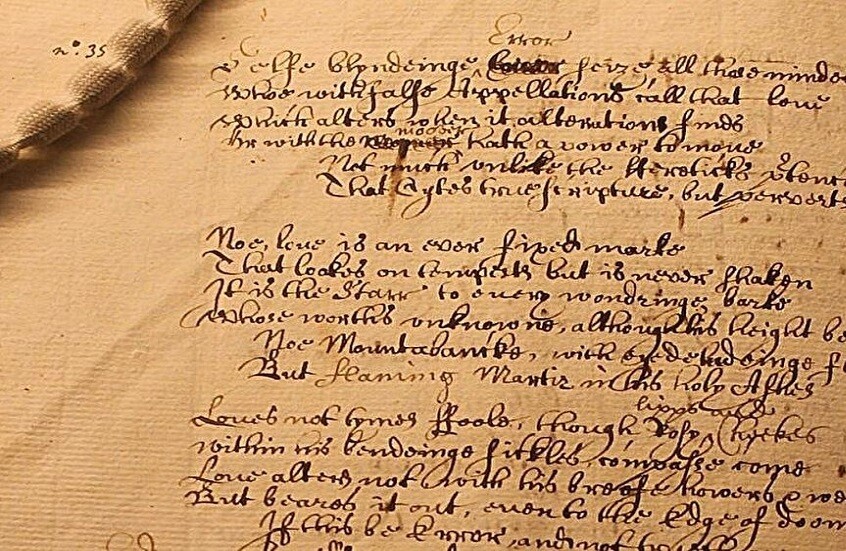 Error
n.º 35
Selfe blyndeinge seize all those mindes
Whoe with false Appellations call that love
Which alters when it alterations finds
Or with the mover hath a power to move
Not much unlike the Heretickes
That Cytes true scripture, but perverts
Noe, love is an ever fixed marke
That lookes on tempests but is never shaken
It is the Starr to every wondringe barke
Whose worth's unknowne, although his height be
Noe Mountabancke, with eye deludeinge
But flaming Martir in his holy Ashes
lipps and
Loves not tymes Foole, though Rosy Cheekes
within his bendeinge sickles compasse come
Love alters not with his breefe howers & we
But beares it out, even to the Edge of doom
If this be Error, and not